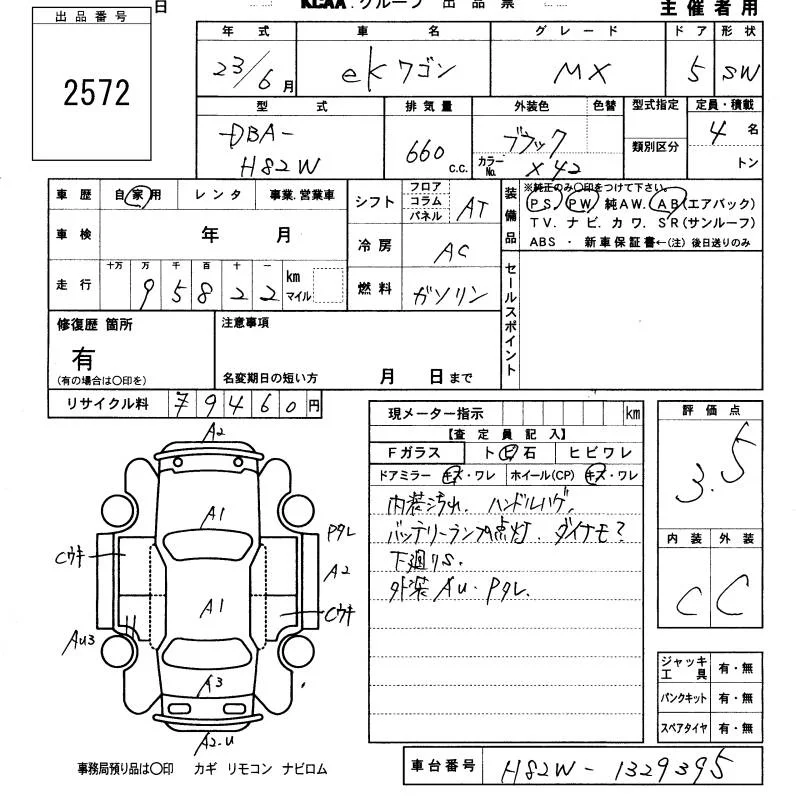 日 KCAA.グループ 出品票 主催者用
出品番号
2572
年式 車名 グレード ドア 形状
23/6月 eKワゴン MX 5 SW
型式 排気量 外装色 色替 型式指定 定員・積載
DBA-
H82W
660 c.c.
ブラック
カラーNo. X42
類別区分
4名
トン
車歴 自家用 レンタ 事業.営業車
シフト フロア コラム パネル AT
装備品
※純正のみ○印をつけて下さい。
PS. PW 純AW. AB(エアバック)
TV. ナビ. カワ. SR(サンルーフ)
ABS ・ 新車保証書←(注) 後日送りのみ
車検 年 月
冷房 AC
走行 十万 万 千 百 十 一
9 5 8 2 2 km マイル
燃料 ガソリン
セールスポイント
修復歴 箇所
有
(有の場合は○印を)
注意事項
名変期日の短い方 月 日まで
リサイクル料 79460円
現メーター指示 km
【査定員記入】
Fガラス ト ビ 石 ヒビワレ
ドアミラー キズ・ワレ ホイール(CP) キズ・ワレ
内装汚れ. ハンドルハゲ.
バッテリーランプ点灯. ダイナモ?
下廻りS.
外装AU. Pタレ.
評価点
3.5
内装 外装
C C
A2
A1
Cウキ
Pタレ
A2
A1
Cウキ
AU3
A3
A2-U
ジャッキ工具 有・無
パンクキット 有・無
スペアタイヤ 有・無
事務局預り品は○印 カギ リモコン ナビロム
車台番号 H82W-1329395